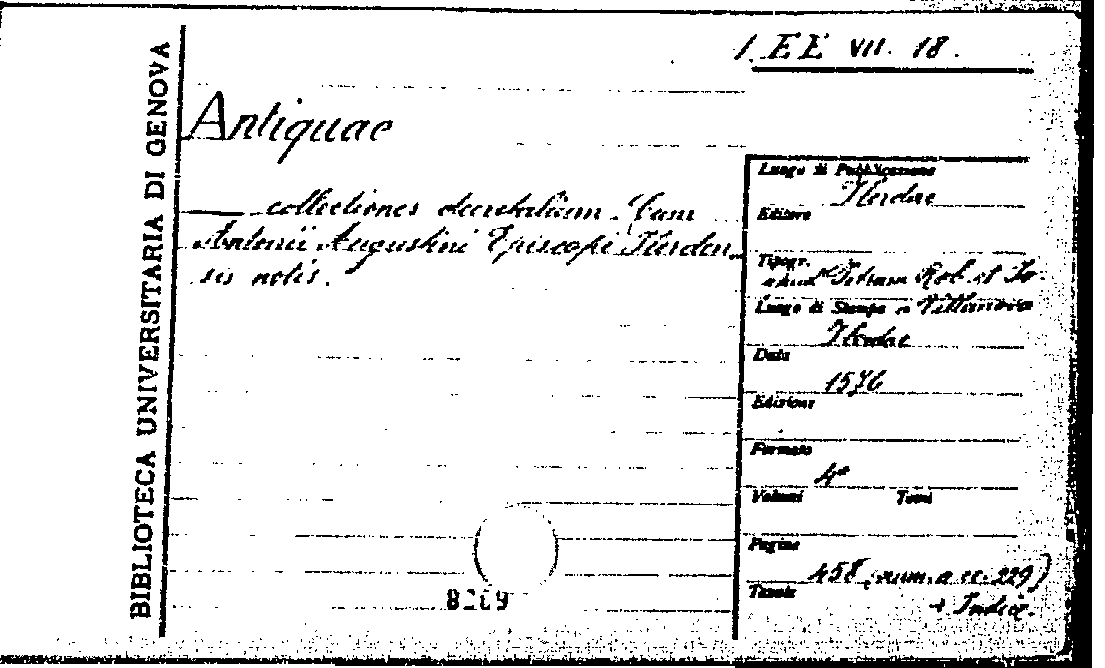 BIBLIOTECA UNIVERSITARIA DI GENOVA
1. EE VII. 18.
Antiquae
collectiones decretalium. Cum
Antonii Augustini Episcopi Ilerden
sis notis.
Luogo di Pubblicazione
Ilerdae
Editore
Tipogr.
apud Petrum Rob. et Io.
Luogo di Stampa a Villanova
Ilerdae
Data
1576
Edizione
Formato
4°
Volumi Tomi
Pagine
458 (num. a cc. 229)
Tavole
+ Indice.
8209